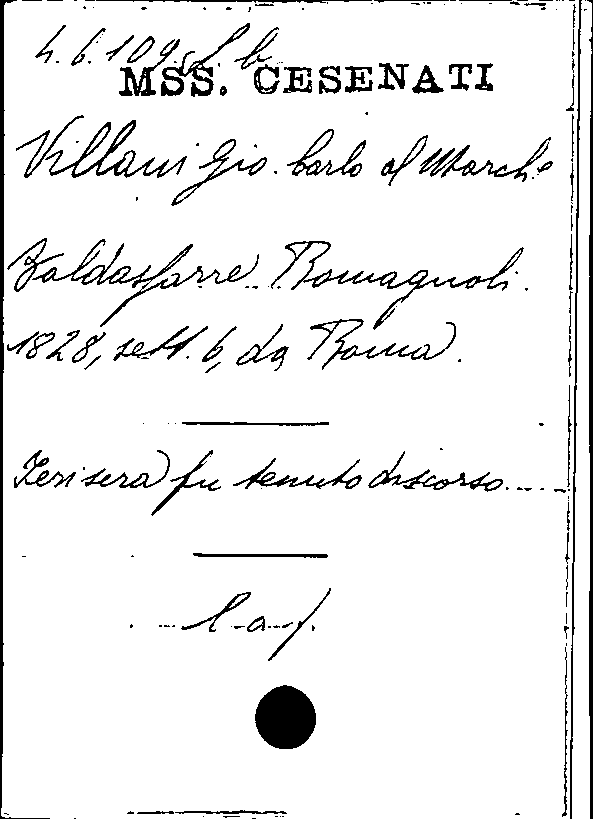 4. 6. 109, L. b
MSS. CESENATI
Villani Gio. Carlo al March.e
Baldassarre Romagnoli.
1828, sett. 6, da Roma.
Ieri sera fu tenuto discorso.....
l. a. f.